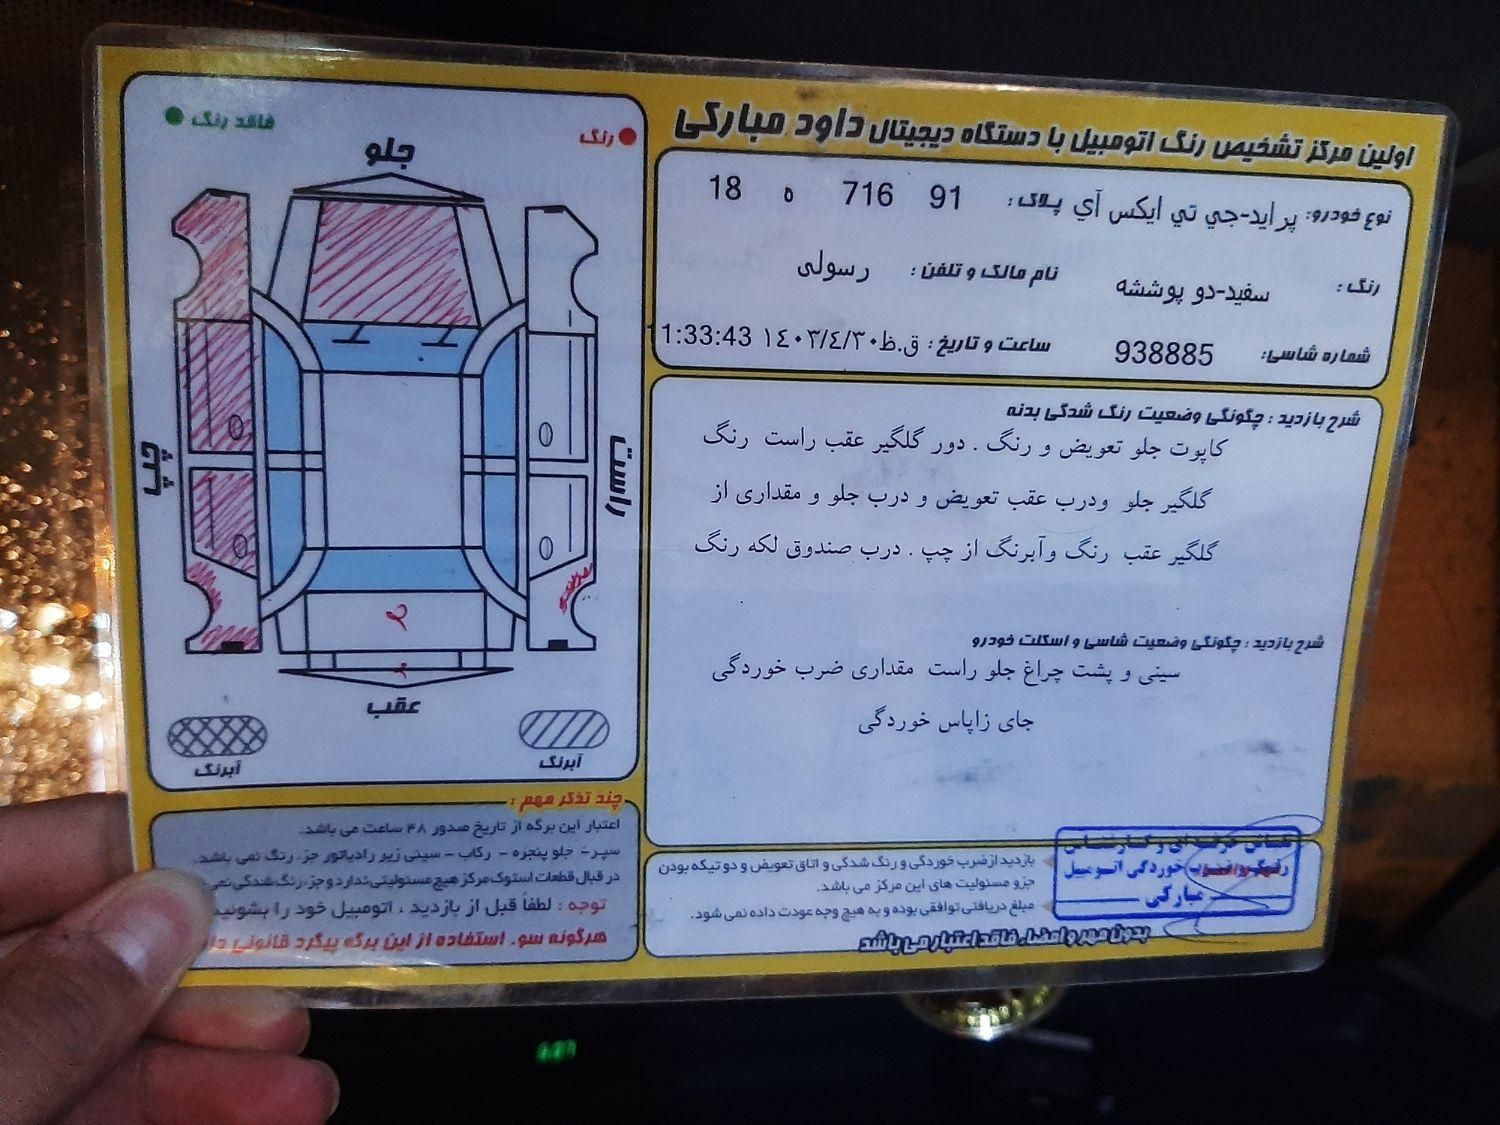 اولین مرکز تشخیص رنگ اتومبیل با دستگاه دیجیتال داود مبارکی
نوع خودرو: پراید-جي تي ايکس آي پلاک: 91 716 ه 18
رنگ: سفید-دو پوششه نام مالک و تلفن: رسولی
شماره شاسی: 938885 ساعت و تاریخ: ۱٤٠٣/٤/٣٠ ق.ظ 1:33:43
شرح بازدید: چگونگی وضعیت رنگ شدگی بدنه
کاپوت جلو تعویض و رنگ . دور گلگیر عقب راست رنگ
گلگیر جلو ودرب عقب تعویض و درب جلو و مقداری از
گلگیر عقب رنگ وآبرنگ از چپ . درب صندوق لکه رنگ
شرح بازدید: چگونگی وضعیت شاسی و اسکلت خودرو
سینی و پشت چراغ جلو راست مقداری ضرب خوردگی
جای زاپاس خوردگی
رنگ
فاقد رنگ
جلو
چپ
راست
عقب
آبرنگ
آبرنگ
چند تذکر مهم:
اعتبار این برگه از تاریخ صدور ۴۸ ساعت می باشد.
سپر- جلو پنجره - رکاب - سینی زیر رادیاتور جزء رنگ نمی باشد.
در قبال قطعات استوک مرکز هیچ مسئولیتی ندارد و جزء رنگ شدگی
توجه: لطفاً قبل از بازدید ، اتومبیل خود را بشوئید
هرگونه سوء استفاده از این برگه پیگرد قانونی
بازدید از ضرب خوردگی و رنگ شدگی و اتاق تعویض و دو تیکه بودن
جزو مسئولیت های این مرکز می باشد.
مبلغ دریافتی توافقی بوده و به هیچ وجه عودت داده نمی شود.
بدون مهر و امضاء فاقد اعتبار می باشد
خوردگی اتومبیل
مبارکی